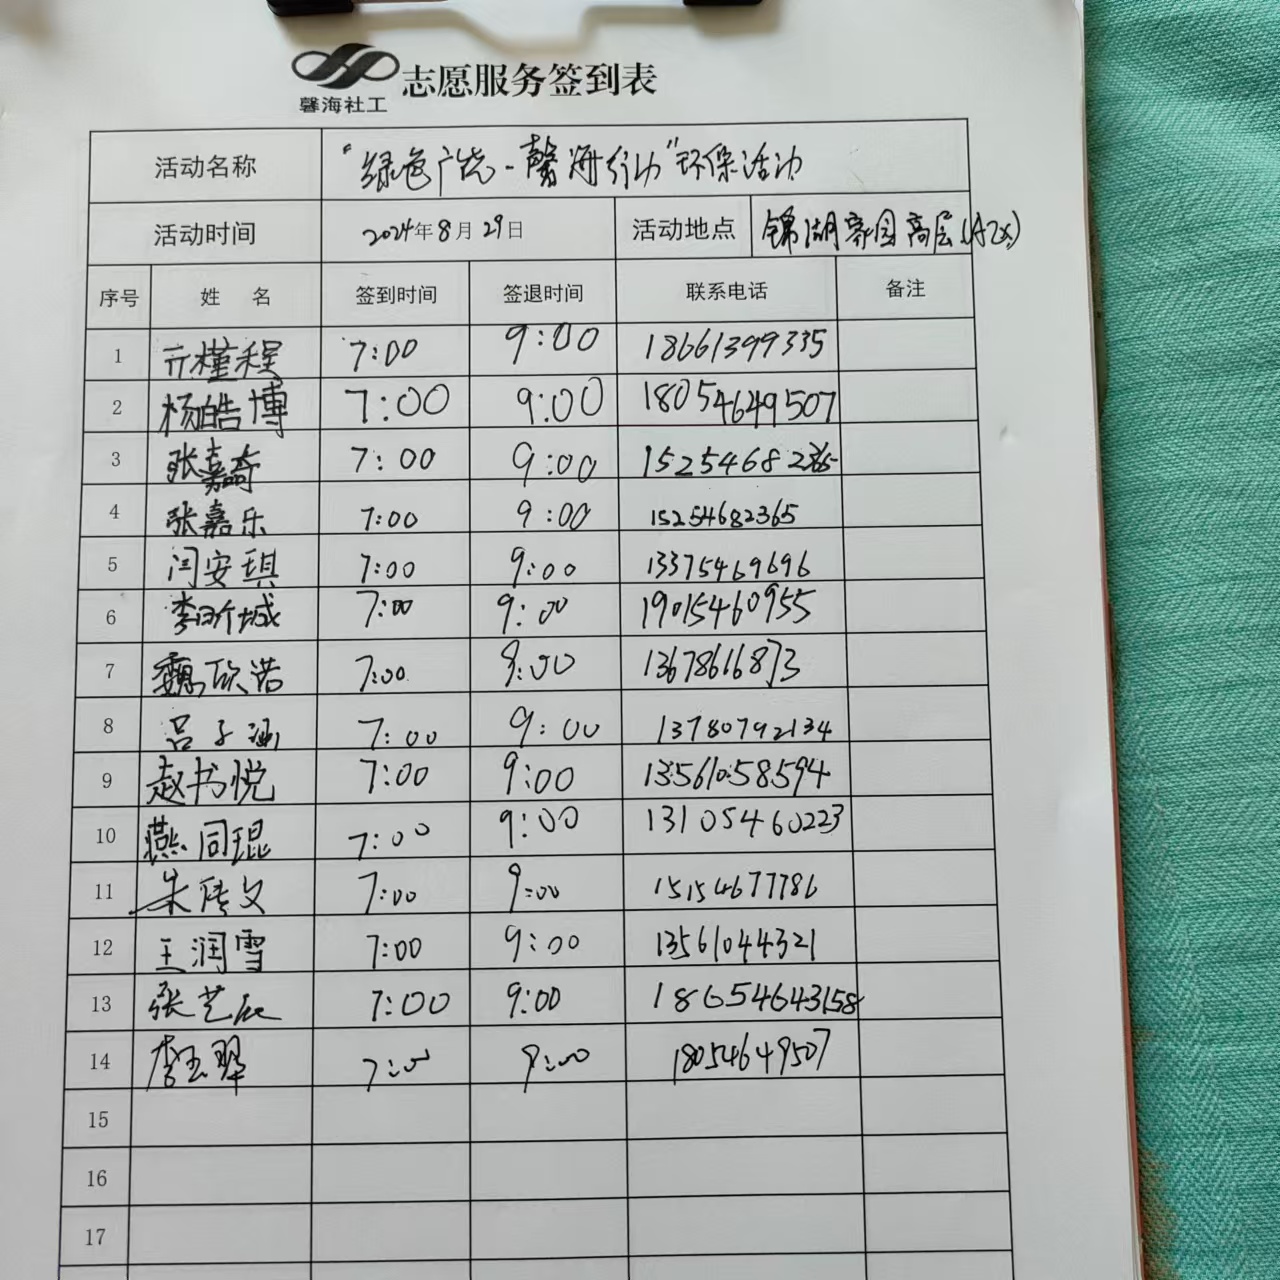 馨海社工
志愿服务签到表
活动名称 “绿色广饶-馨海行动”环保活动
活动时间 2024年8月29日 活动地点 锦湖帝园高层(A区)
序号 姓 名 签到时间 签退时间 联系电话 备注
1 亓槿程 7:00 9:00 18661399335
2 杨皓博 7:00 9:00 18054649507
3 张嘉奇 7:00 9:00 15254682365
4 张嘉乐 7:00 9:00 15254682365
5 闫安琪 7:00 9:00 13375469696
6 李 城 7:00 9:00 19015460955
7 魏欣浩 7:00 9:00 13678616873
8 吕子涵 7:00 9:00 13780792134
9 赵书悦 7:00 9:00 13561058594
10 燕同琨 7:00 9:00 13105460223
11 朱传文 7:00 9:00 15154677786
12 王润雪 7:00 9:00 13561044321
13 张艺辰 7:00 9:00 18654643158
14 李玉翠 7:00 9:00 18054649507
15
16
17